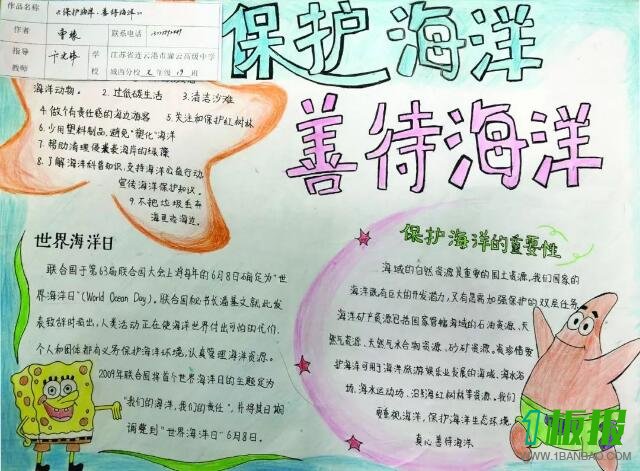 作品名称
《保护海洋·善待海洋》
作者
联系电话
指导教师
学校
江苏省连云港市灌云高级中学
城西分校 七年级 19 班
保护海洋
善待海洋
海洋动物。 2. 过低碳生活 3. 清洁沙滩
4. 做个有责任感的海边游客 5. 关注和保护红树林
6. 少用塑料制品,避免"塑化"海洋
7. 帮助清理侵袭海岸的绿藻
8. 了解海洋科普知识,支持海洋公益行动,
宣传海洋保护知识。
9. 不把垃圾丢弃
海里或海边。
世界海洋日
联合国于第63届联合国大会上将每年的6月8日确定为"世
界海洋日"(World Ocean Day)。联合国秘书长潘基文就此发
表致辞时指出,人类活动正在使海洋世界付出可怕的代价,
个人和团体都有义务保护海洋环境,认真管理海洋资源。
2009年联合国将首个世界海洋日的主题定为
"我们的海洋,我们的责任",并将其日期
调整到"世界海洋日"6月8日。
保护海洋的重要性
海域的自然资源是重要的国土资源,我们国家的
海洋既有巨大的开发潜力,又有着高加强保护的双层任务
海洋矿产资源包括国家管辖海域的石油资源、天
然气资源、天然气水合物资源、砂矿资源。我珍惜
护海洋可用于海洋旅游娱乐业发展的海域、海水浴
场、海水运动场、沿海红树林带资源。我们
要重视海洋,保护海洋生态环境,
真心善待海洋.
1板报
WWW.1BANBAO.COM